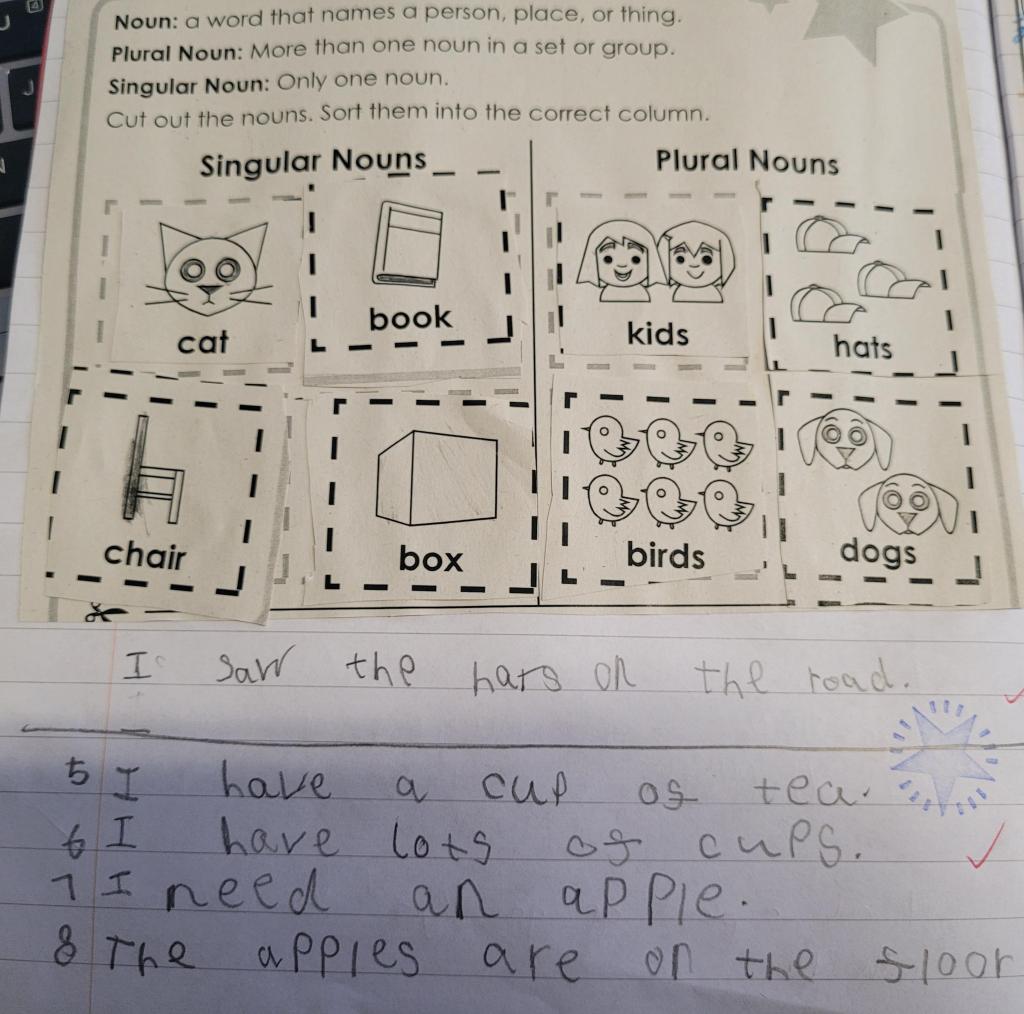 Noun: a word that names a person, place, or thing.
Plural Noun: More than one noun in a set or group.
Singular Noun: Only one noun.
Cut out the nouns. Sort them into the correct column.
Singular Nouns
Plural Nouns
cat
book
kids
hats
chair
box
birds
dogs
I saw the hats on the road.
5 I have a cup of tea.
6 I have lots of cups.
7 I need an apple.
8 The apples are on the floor